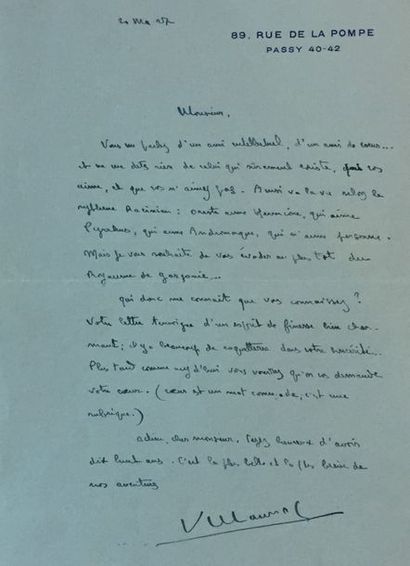 20 Mai
89, RUE DE LA POMPE
PASSY 40-42
Monsieur,
Vous me parlez d'un ami intellectuel, d'un ami de cœur...
et ne me dites rien de celui qui sûrement existe, vos
aime, et que vos n'aimez pas. Ainsi va la vie selon le
système Racinien : Oreste aime Hermione, qui aime
Pyrrhus, qui aime Andromaque, qui n'aime personne.
Mais je vous souhaite de vos évader au plus tôt du
Royaume de
qui donc me connait que vos connaissez ?
Votre lettre témoigne d'un esprit de finesse bien char-
mant ; il y a beaucoup de coquetterie dans votre sincérité...
Plus tard comme aujourd'hui vos voudrez qu'on vos demande
votre cœur. (cœur est un mot commode, c'est une
rubrique.)
adieu, cher monsieur, soyez heureux d'avoir
dix huit ans. C'est la plus belle et la plus brève de
nos aventures